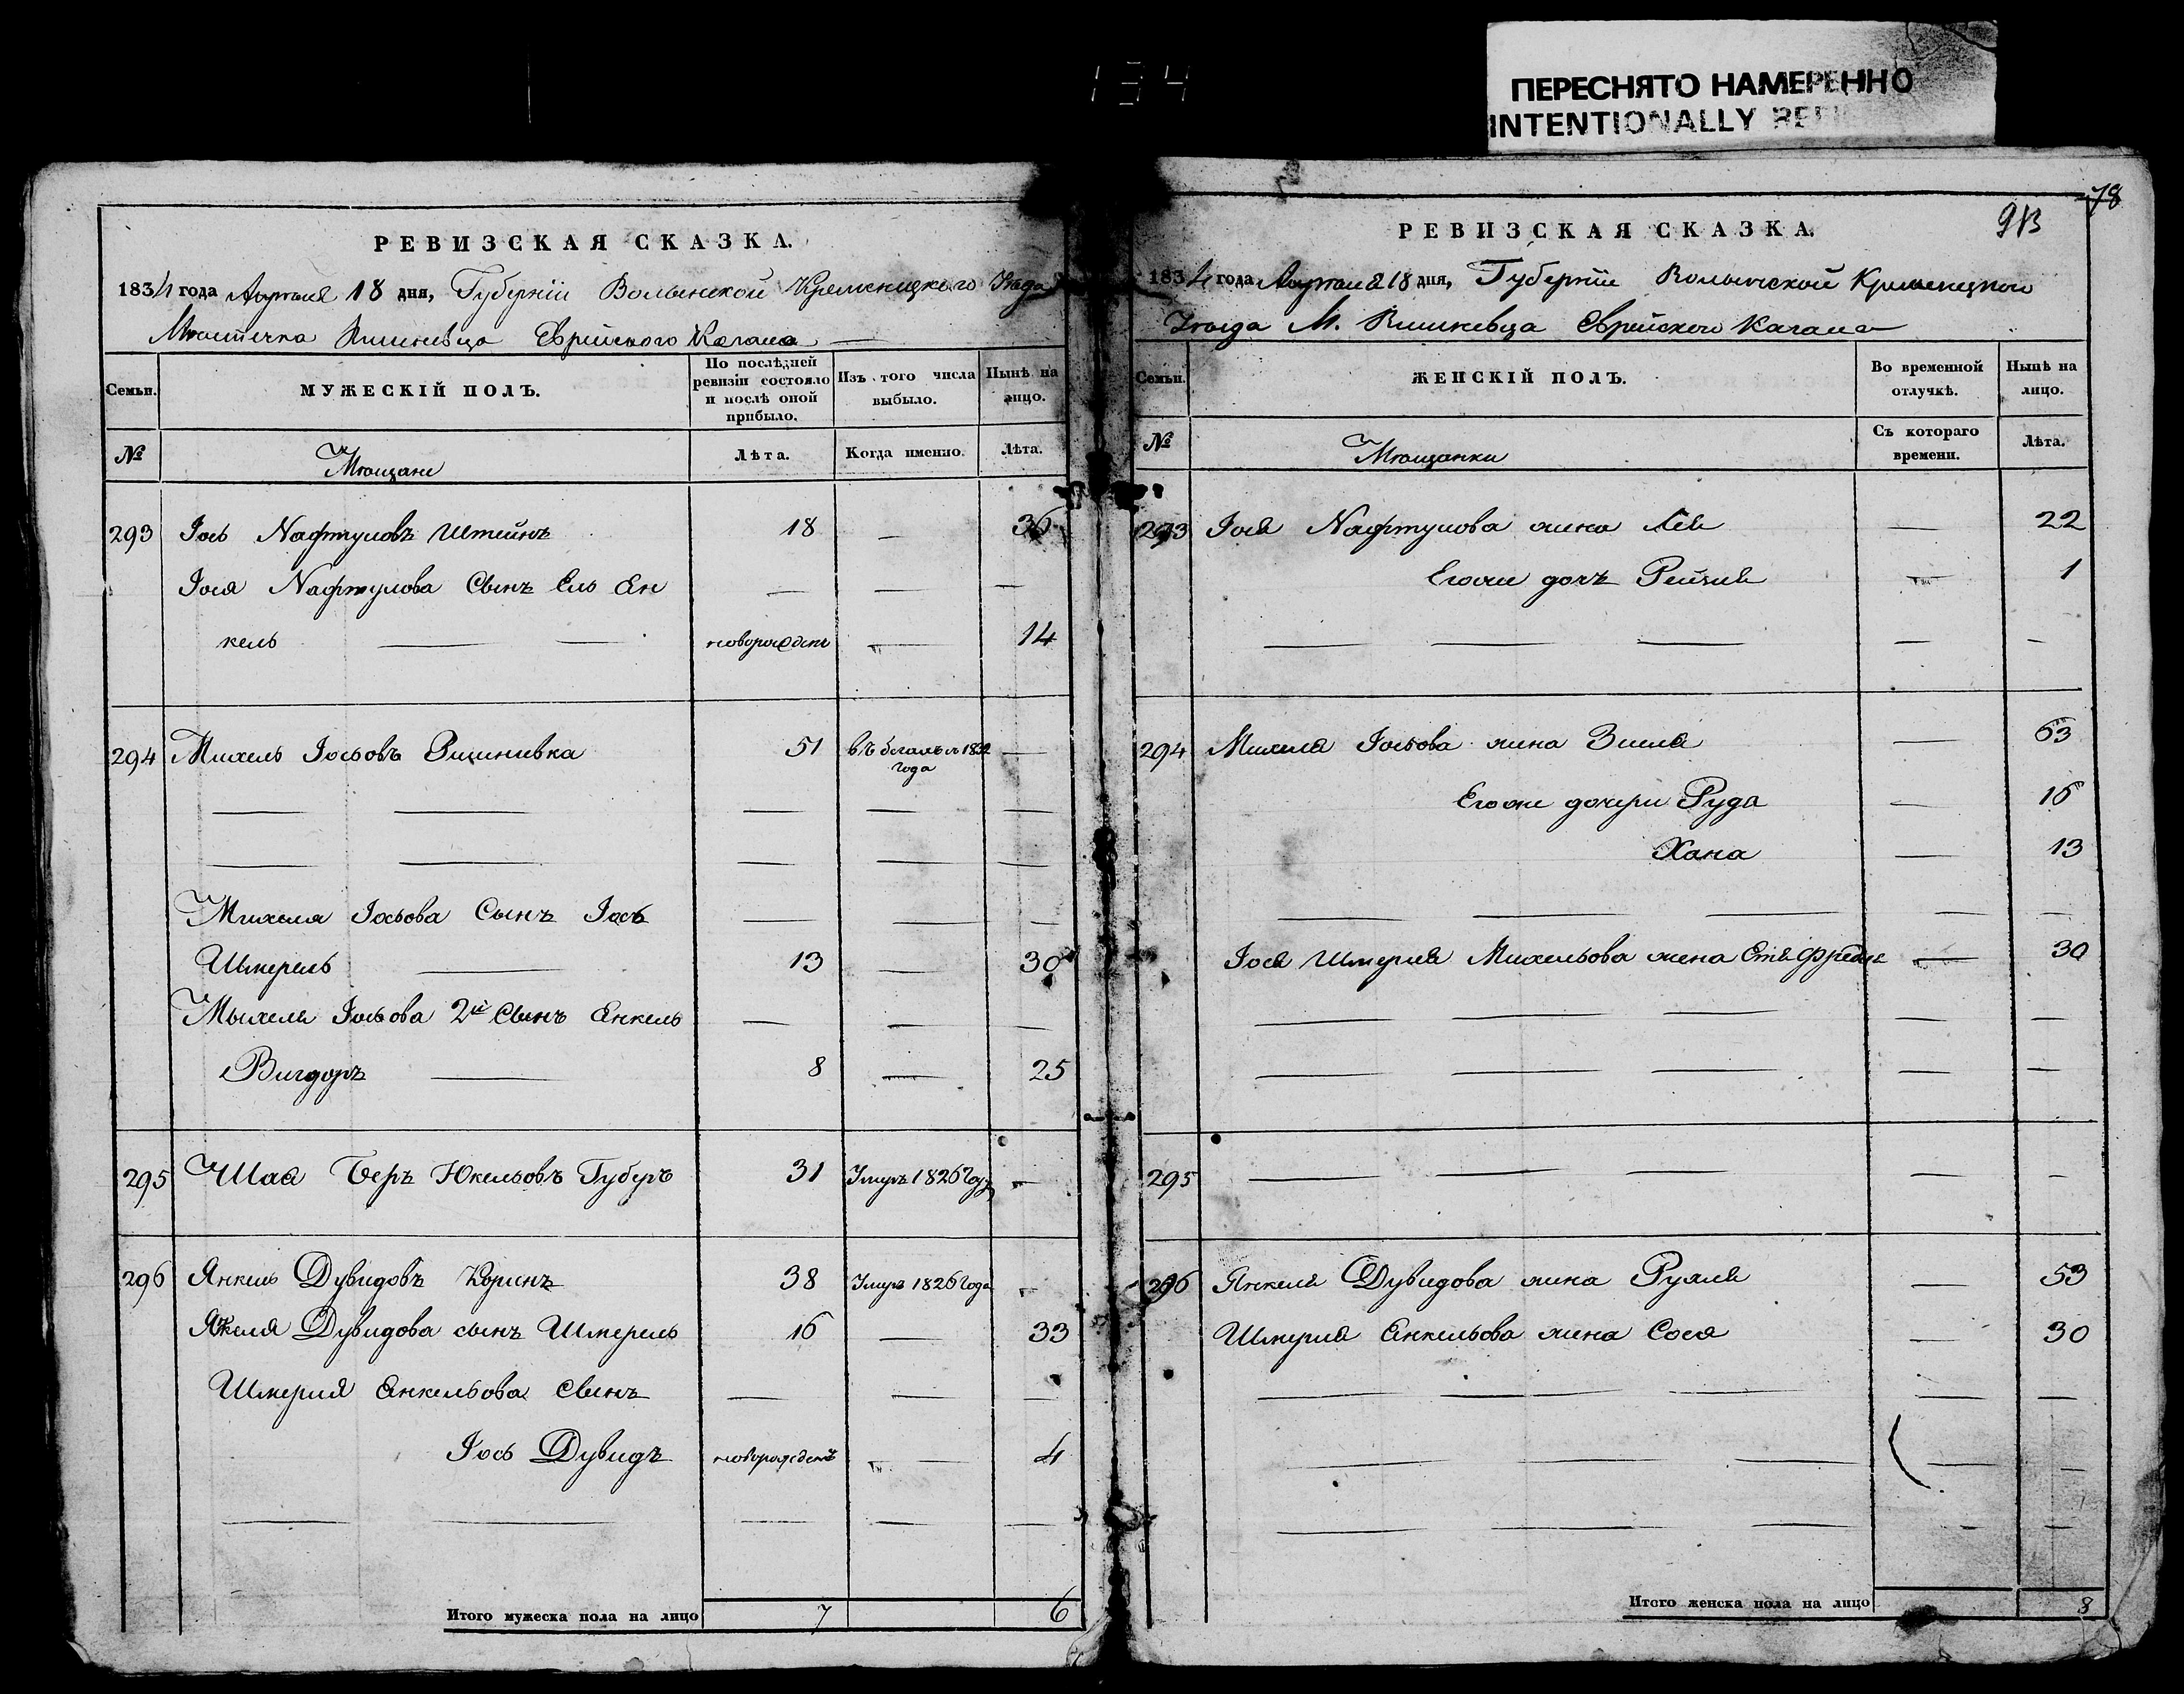 134
ПЕРЕСНЯТО НАМЕРЕННО
INTENTIONALLY
РЕВИЗСКАЯ СКАЗКА.
1834 года Апреля 18 дня, Губернїи Волынской Кременецкого Уезда
Местечка Вишневца Еврейского Кагала
Семьи.
МУЖЕСКІЙ ПОЛЪ.
По послѣдней ревизіи состояло и послѣ оной прибыло.
Изъ того числа выбыло.
Нынѣ на лицо.
№
Мещане
Лѣта.
Когда именно.
Лѣта.
293 Іось Нафтуловъ Штейнъ 18 — 36
Іося Нафтулова Сынъ Ель Ян — — —
кель — — новорожденъ — 14
294 Михель Іосьовъ 51 въ бегахъ с 1832 года —
— — — — —
— — — — —
Михеля Іосьова Сынъ Іось — — —
Шмерель — 13 — 30
Мыхеля Іосьова 2й Сынъ Янкель — — —
Вигдоръ — 8 — 25
295 Шая Беръ Юкельовъ Губеръ 31 Умеръ 1826 Году —
296 Янкель Дувидовъ Коринъ 38 Умеръ 1826 Года —
Янкеля Дувидова сынъ Шмерель 16 — 33
Шмерля Янкельова Сынъ — — —
Іось Дувидъ новорожденъ — 4
— — — — —
Итого мужеска пола на лицо 7 6
78
РЕВИЗСКАЯ СКАЗКА.
1834 года Апреля 18 дня, Губернїи Волынской Кременецкого
Уезда М. Вишневца Еврейского Кагала
Семьи.
ЖЕНСКІЙ ПОЛЪ.
Во временной отлучкѣ.
Нынѣ на лицо.
№
Мещанки
Съ котораго времени.
Лѣта.
293 Іося Нафтулова жена Лея — 22
Егоже дочъ Рейзля — 1
— — — — —
294 Михеля Іосьова жена Зисля — 53
Егоже дочери Руда — 16
Хана — 13
— — — — —
Іося Шмерля Михельова жена — 30
— — — — —
— — — — —
295 — — — — —
296 Янкеля Дувидова жена Рухля — 53
Шмерля Янкельова жена Сося — 30
— — — — —
— — — — —
— — — — —
Итого женска пола на лицо 8